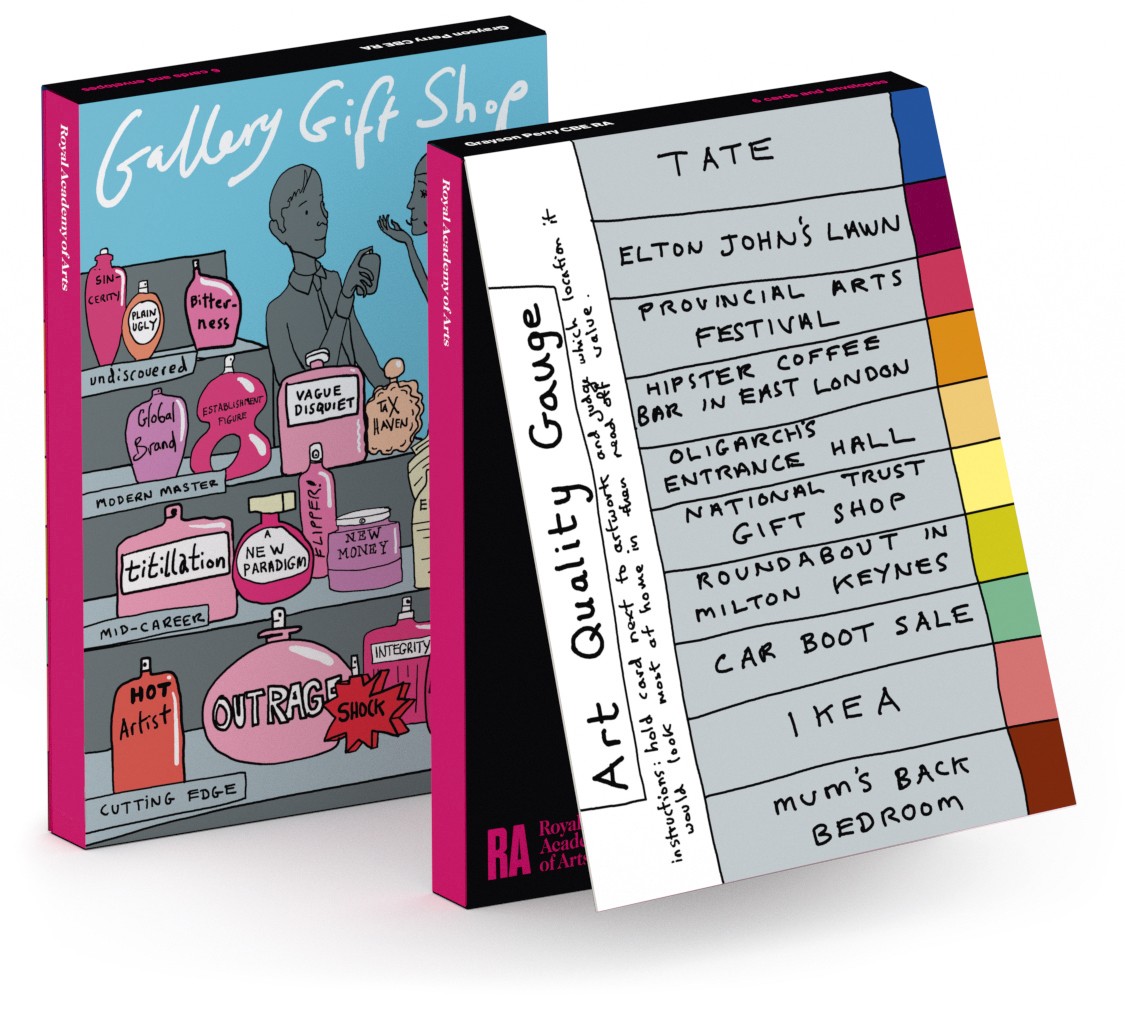 Grayson Perry CBE RA
5 cards and envelopes
Royal Academy of Arts
Gallery Gift Shop
SIN-
CERITY
PLAIN
UGLY
Bitter-
ness
undiscovered
Global
Brand
ESTABLISHMENT
FIGURE
VAGUE
DISQUIET
TAX
HAVEN
MODERN MASTER
titillation
A
NEW
PARADIGM
FLIPPER!
NEW
MONEY
MID-CAREER
HOT
Artist
OUTRAGE
SHOCK
INTEGRITY
CUTTING EDGE
Grayson Perry CBE RA
5 cards and envelopes
Royal Academy of Arts
RA
Royal
Acade
of Arts
Art Quality Gauge
instructions: hold card next to artwork and judge which location it
would look most at home in then read off value.
TATE
ELTON JOHN'S LAWN
PROVINCIAL ARTS
FESTIVAL
HIPSTER COFFEE
BAR IN EAST LONDON
OLIGARCH'S
ENTRANCE HALL
NATIONAL TRUST
GIFT SHOP
ROUNDABOUT IN
MILTON KEYNES
CAR BOOT SALE
IKEA
MUM'S BACK
BEDROOM